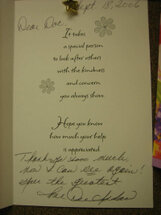 Sept 18, 2006
Dear Doc,
It takes
a special person
to look after others
with the kindness
and concern
you always show.
Hope you know
how much your help
is appreciated.
Thank you so much
now I can see again!
You're the greatest